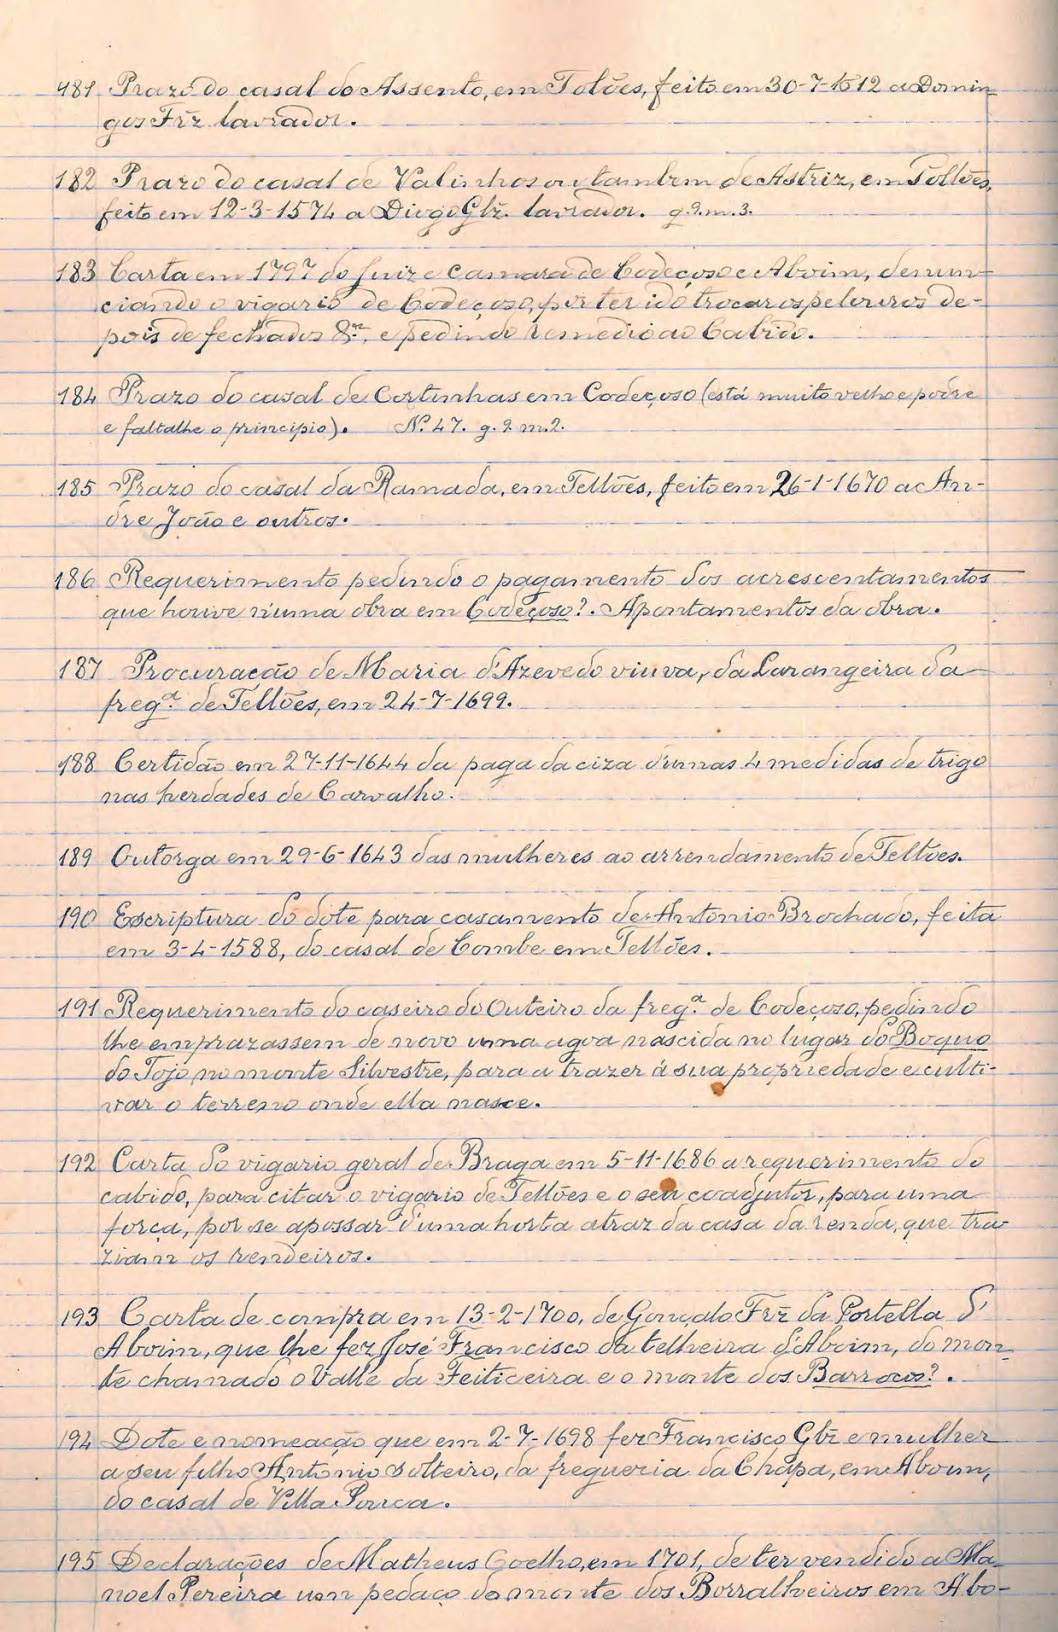 181 Prazo do casal do Assento, em Tolões, feito em 30-7-1512 a Domin-
gos Frz lavrador.
182 Prazo do casal de Valinhos ou tambem de Astriz, em Tollões,
feito em 12-3-1574 a Diogo Glz. lavrador. g.9.m.3.
183 Carta em 1797 do Juiz e Camara de Codeçoso e Aboim, denun-
ciando o vigario de Codeçoso, por ter ido trocar os pelouros de-
pois de fechados &ª, e pedindo remedio ao Cabido.
184 Prazo do casal de Cortinhas em Codeçoso (está muito velho e podre
e faltalhe o principio). N.º 47. g.9.m.2.
185 Prazo do casal da Ramada, em Tellões, feito em 26-1-1670 a An-
dre João e outros.
186 Requerimento pedindo o pagamento dos acrescentamentos
que houve n'uma obra em Codeçoso?. Apontamentos da obra.
187 Procuração de Maria d'Azevedo viuva, da Larangeira da
freg.ª de Tellões, em 24-7-1699.
188 Certidão em 27-11-1644 da paga da ciza d'umas 4 medidas de trigo
nas herdades de Carvalho.
189 Outorga em 29-6-1643 das mulheres ao arrendamento de Tellões.
190 Escriptura do dote para casamento de Antonio Brochado, feita
em 3-4-1588, do casal de Combe em Tellões.
191 Requerimento do caseiro do Outeiro da freg.ª de Codeçoso, pedindo
lhe emprazassem de novo uma agoa nascida no lugar do Boquo
do Tojo no monte Silvestre, para a trazer á sua propriedade e culti-
var o terreno onde ella nasce.
192 Carta do vigario geral de Braga em 5-11-1686 a requerimento do
cabido, para citar o vigario de Tellões e o seu coadjutor, para uma
força, por se apossar d'uma horta atraz da casa da renda, que tra-
ziam os rendeiros.
193 Carta de compra em 13-2-1700, de Gonçalo Frz da Portella d'
Aboim, que lhe fez José Francisco da telheira d'Aboim, do mon-
te chamado o Valle da Feiticeira e o monte dos Barrocos?.
194 Dote e nomeação que em 2-7-1698 fez Francisco Glz e mulher
a seu filho Antonio solteiro, da fregueria da Chapa, em Aboim,
do casal de Villa Pouca.
195 Declarações de Matheus Coelho, em 1701, de ter vendido a Ma-
noel Pereira um pedaço do monte dos Borralheiros em Abo-